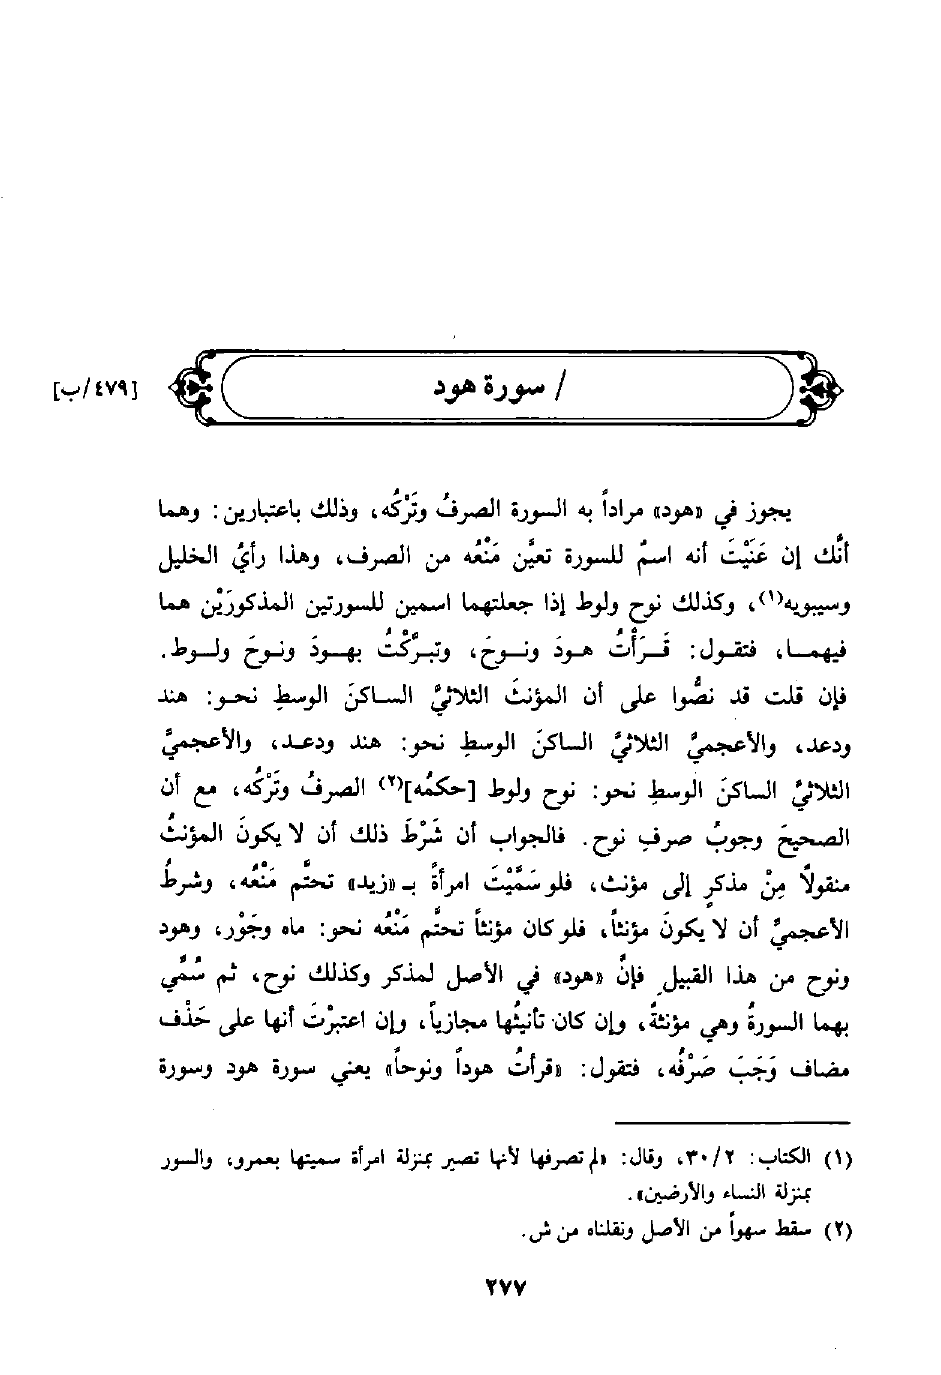 / سورة هود
[٤٧٩/ب]
يجوز في «هود» مراداً به السورة الصرفُ وتَرْكُه، وذلك باعتبارين: وهما
أنَّك إن عَنَيْتَ أنه اسمٌ للسورة تعيَّن مَنْعُه من الصرف، وهذا رأيُ الخليل
وسيبويه(١)، وكذلك نوح ولوط إذا جعلتهما اسمين للسورتين المذكورَيْن هما
فيهمــا، فتقــول: قَــرَأْتُ هــودَ ونــوحَ، وتبــرَّكْتُ بهــودَ ونــوحَ ولــوط.
فإن قلت قد نصُّوا على أن المؤنثَ الثلاثيَّ الساكنَ الوسطِ نحو: هند
ودعد، والأعجميَّ الثلاثيَّ الساكنَ الوسطِ نحو: هند ودعد، والأعجميَّ
الثلاثيَّ الساكنَ الوسطِ نحو: نوح ولوط [حكمُه](٢) الصرفُ وتَرْكُه، مع أن
الصحيحَ وجوبُ صرفِ نوح. فالجواب أن شَرْطَ ذلك أن لا يكونَ المؤنثُ
منقولاً مِنْ مذكرٍ إلى مؤنث، فلو سَمَّيْتَ امرأةً بـ «زيد» تحتَّم مَنْعُه، وشرطُ
الأعجميِّ أن لا يكونَ مؤنثاً، فلو كان مؤنثاً تحتَّم مَنْعُه نحو: ماه وجَوْر، وهود
ونوح من هذا القبيل فإنَّ «هود» في الأصل لمذكر وكذلك نوح، ثم سُمِّي
بهما السورةُ وهي مؤنثةٌ، وإن كان تأنيثُها مجازياً، وإن اعتبرْتَ أنها على حَذْف
مضاف وَجَبَ صَرْفُه، فتقول: «قرأتُ هوداً ونوحاً» يعني سورة هود وسورة
(١) الكتاب: ٣٠/٢، وقال: «لم تصرفها لأنها تصير بمنزلة امرأة سميتها بعمرو، والسور
بمنزلة النساء والأرضين».
(٢) سقط سهواً من الأصل ونقلناه من ش.
٢٧٧